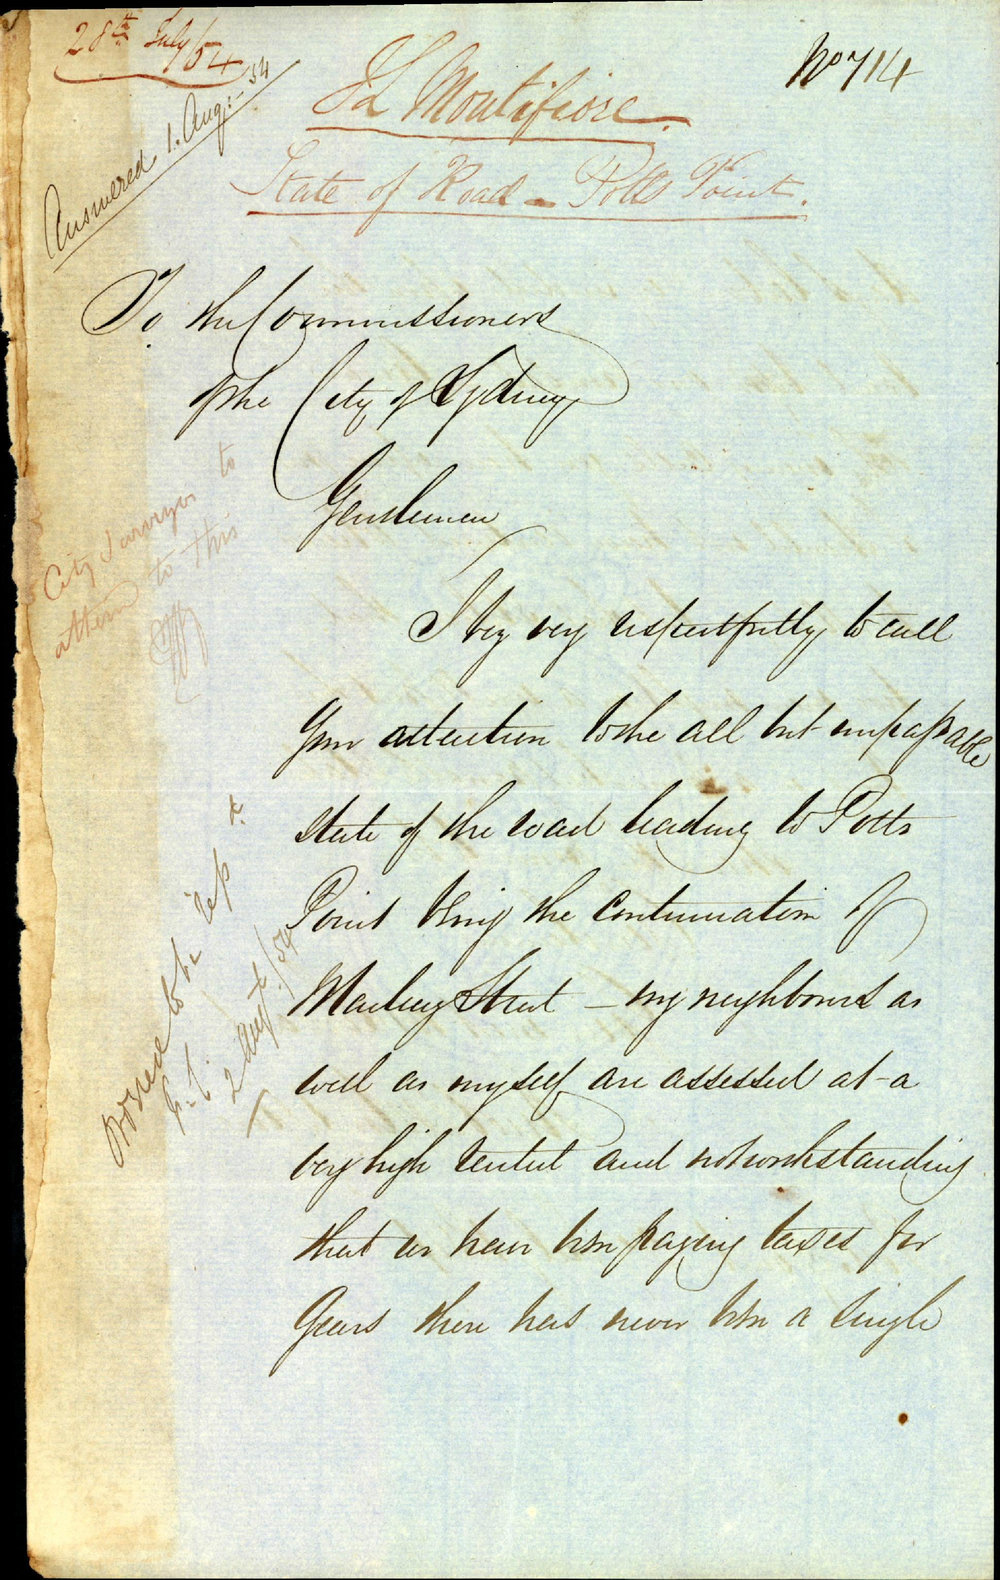 28th July/54
No 714
Answered 1. Aug: 54
J L Montifiore.
State of Road - Potts Point.
To the Commissioners
of the City of Sydney
Gentlemen
City Surveyor to
attend to this
I beg very respectfully to call
your attention to the all but impassable
state of the road leading to Potts
Point being the continuation of
Macleay Street - my neighbours as
well as myself are assessed at a
very high rental and notwithstanding
that we have been paying taxes for
Years there has never been a single
to be
2 Augt/54